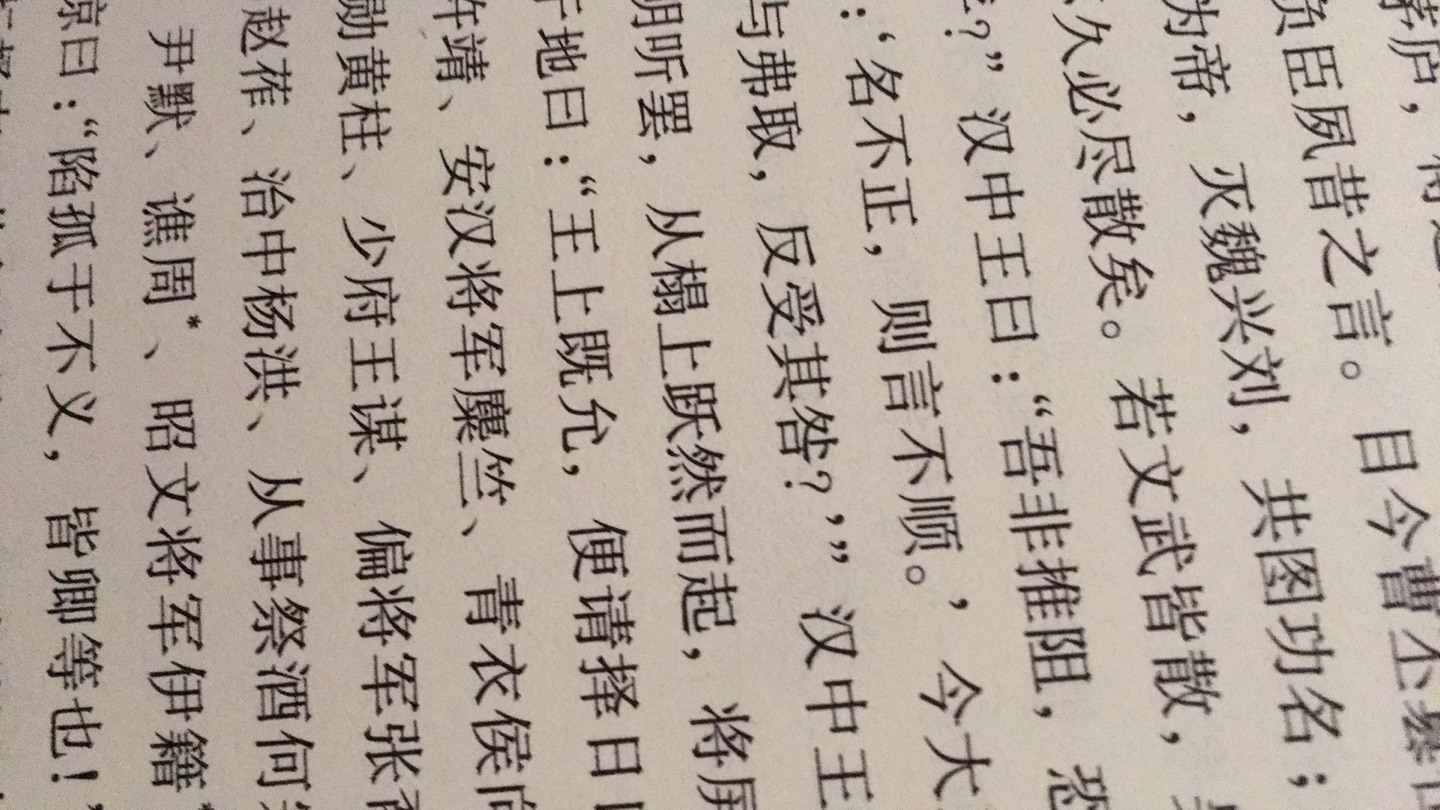 庐，
负臣夙昔之言。目今曹丕篡
为帝，灭魏兴刘，共图功名；
久必尽散矣。若文武皆散，
？”汉中王曰：“吾非推阻，恐
：‘名不正，则言不顺。’今大
与弗取，反受其咎？’”汉中王
明听罢，从榻上跃然而起，将屏
于地曰：“王上既允，便请择日
许靖、安汉将军麋竺、青衣侯向
勋黄柱、少府王谋、偏将军张裔
赵莋、治中杨洪、从事祭酒何
尹默、谯周*、昭文将军伊籍*
惊曰：“陷孤于不义，皆卿等也！”